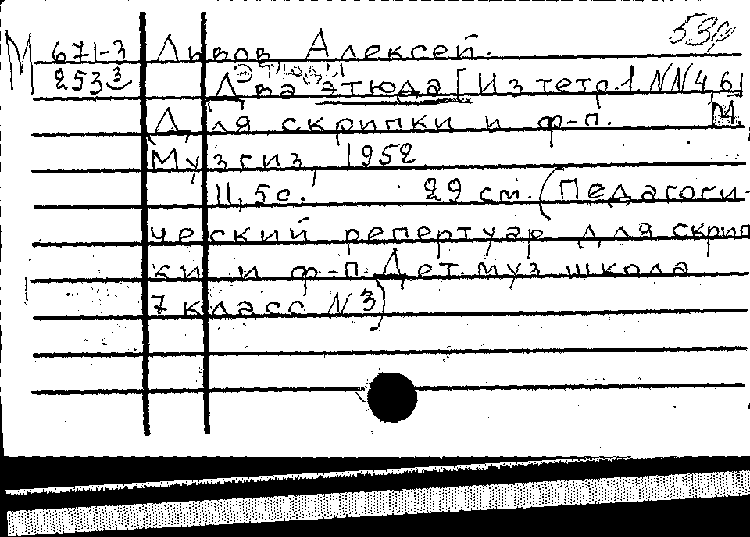 53р
М 671-3 Львов Алексей.
253 3 Этюды
Два этюда [Из тетр. 1. NN 4, 6]
Для скрипки и ф-п. М.
Музгиз, 1952.
11, 5 с. 29 см. (Педагоги-
ческий репертуар для скрип
ки и ф-п. Дет. муз. школа
7 класс N 3)